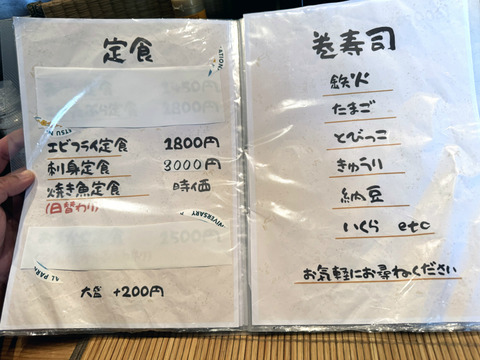 定食
エビフライ定食 1800円
刺身定食 3000円
焼き魚定食 時価
(日替わり)
大盛 +200円
巻寿司
鉄火
たまご
とびっこ
きゅうり
納豆
いくら etc
お気軽にお尋ねください